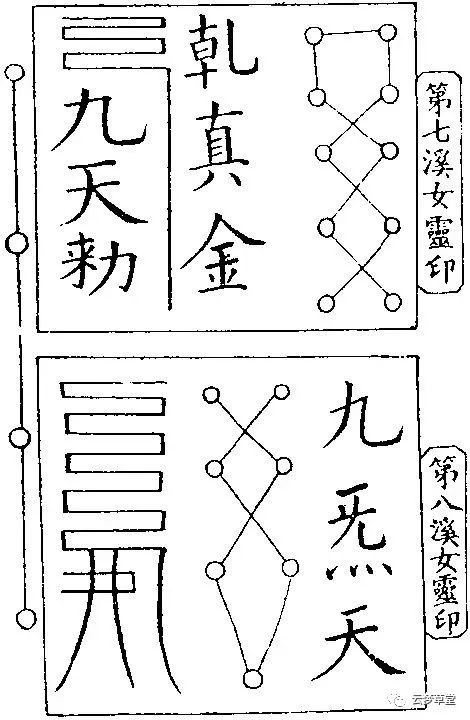 第七溪女靈印
乹真金
九天勑
第八溪女靈印
九炁天
云梦草堂